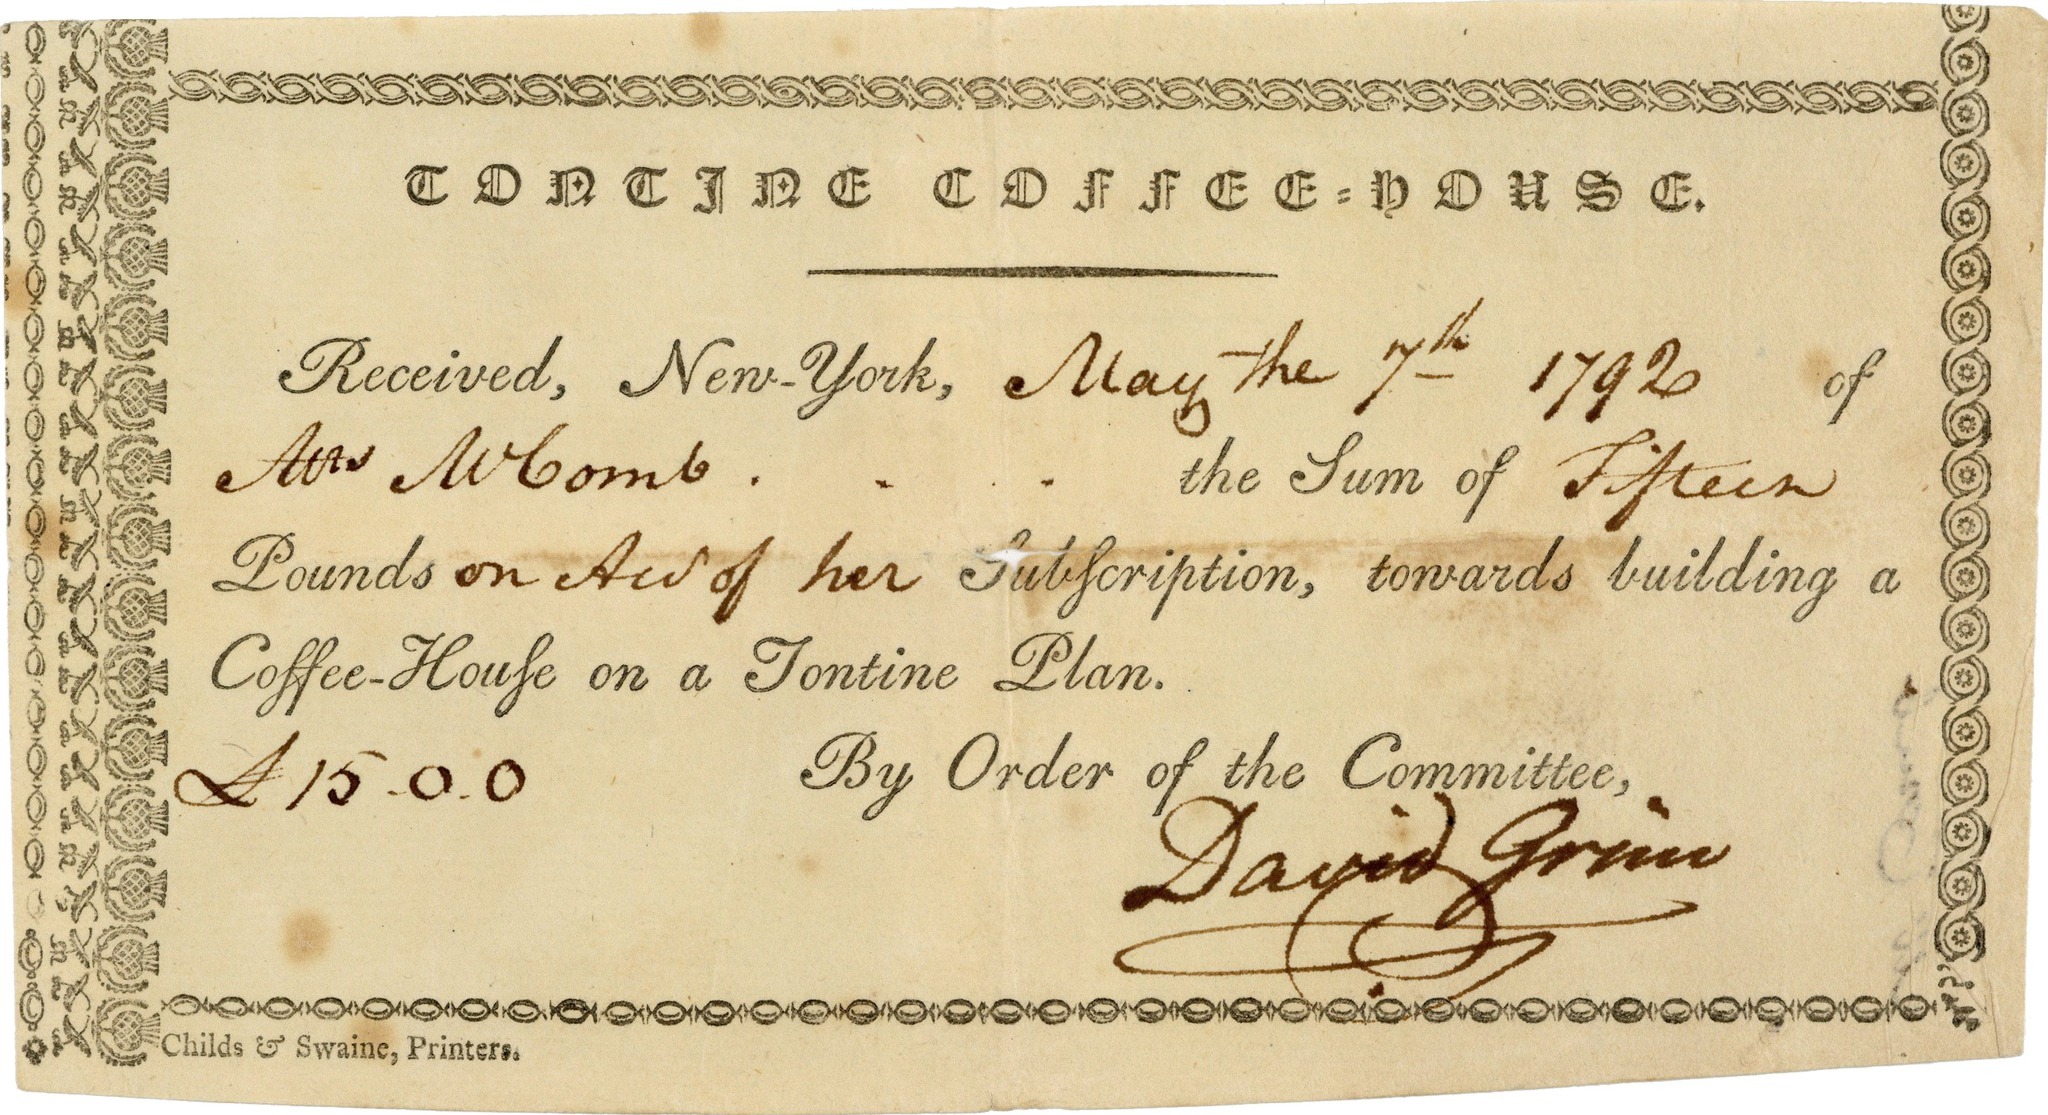 TONTINE COFFEE-HOUSE.
Received, New-York, May the 7th 1792 of
Mrs McComb . . . the Sum of Fifteen
Pounds on Acct of her Subſcription, towards building a
Coffee-Houſe on a Tontine Plan.
£ 15-0.0 By Order of the Committee,
David Grim
Childs & Swaine, Printers.